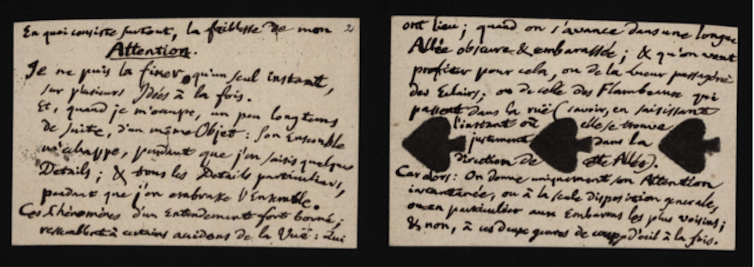 En quoi consiste surtout, la foiblesse de mon 2
Attention.
Je ne puis la fixer, qu'un seul instant,
sur plusieurs Idées à la fois.
Et, quand je m'occupe, un peu longtems
de suite, d'un même Objet: son Ensemble
m'échappe, pendant que j'en saisis quelques
Détails; & tous les Détails particuliers,
pendant que j'en embrasse l'Ensemble.
Ces Phénomènes d'un Entendement fort borné;
ressemblent à certains accidens de la Vuë: qui
ont lieu; quand on s'avance dans une longue
Allée obscure & embarassée; & qu'on veut
profiter pour cela, ou de la Lueur passagère
des Eclairs; ou de celle des Flambeaux qui
passent dans la ruë (savoir, en saisissant
l'instant où elle se trouve
justement dans la
direction de cette Allée).
Car alors: On donne uniquement son Attention
instantanée, ou à la seule disposition generale,
ou en particulier aux Embarras les plus voisins;
& non, à ces deux genres de coupp d'oeil à la fois.